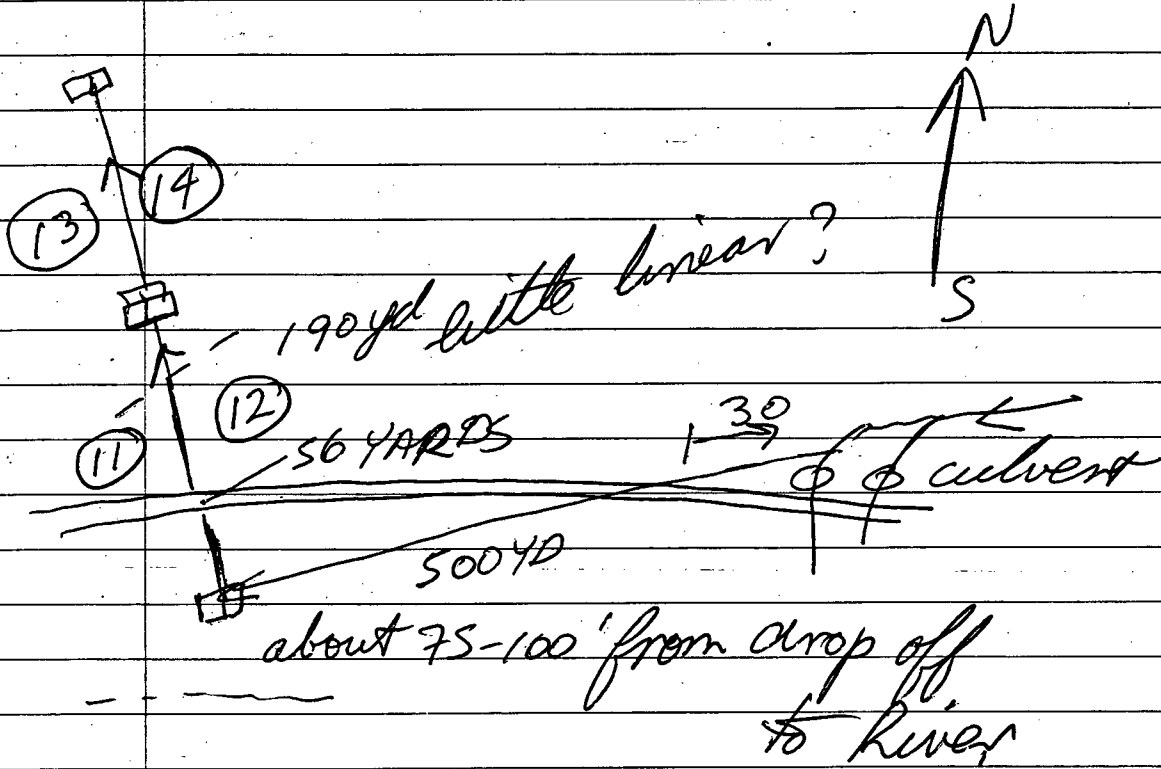 N
14
13
190yd little linear?
S
12
30
11
56 YARDS
culvert
500YD
about 75-100' from drop off
to River